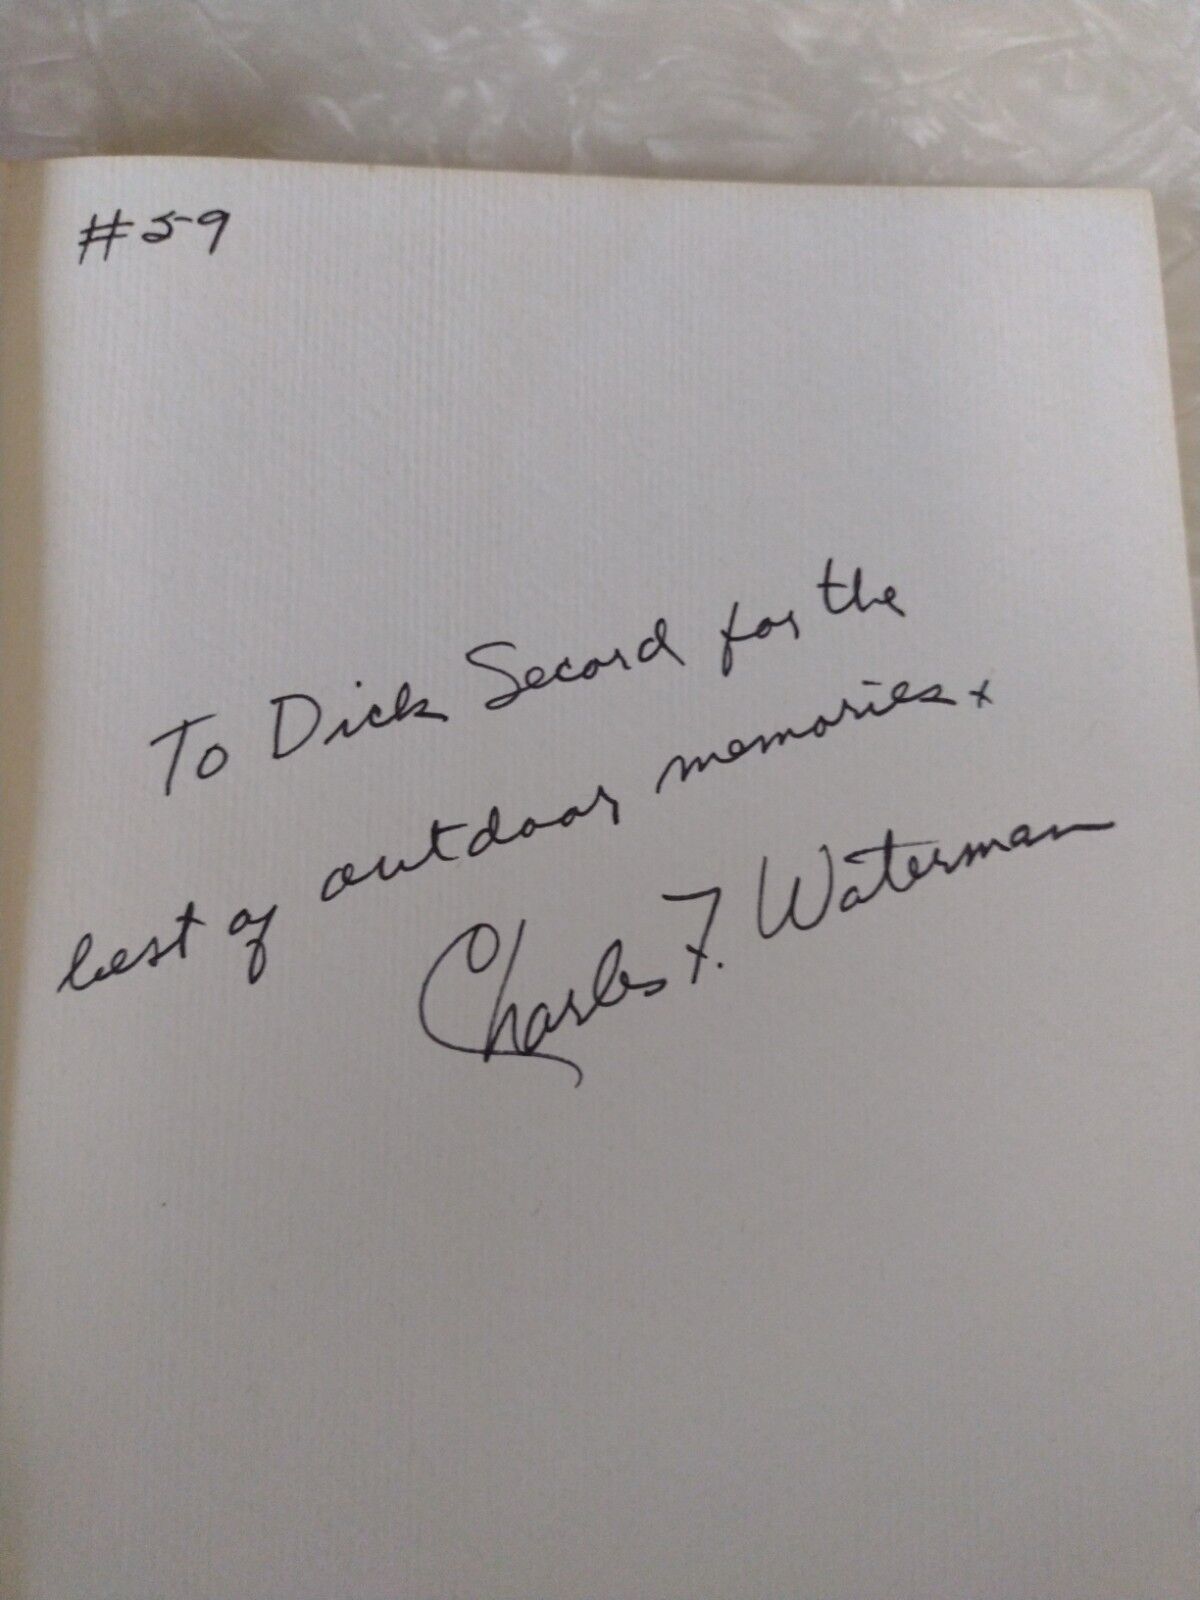 #59
To Dick Secord for the
best of outdoor memories.
Charles F. Waterman